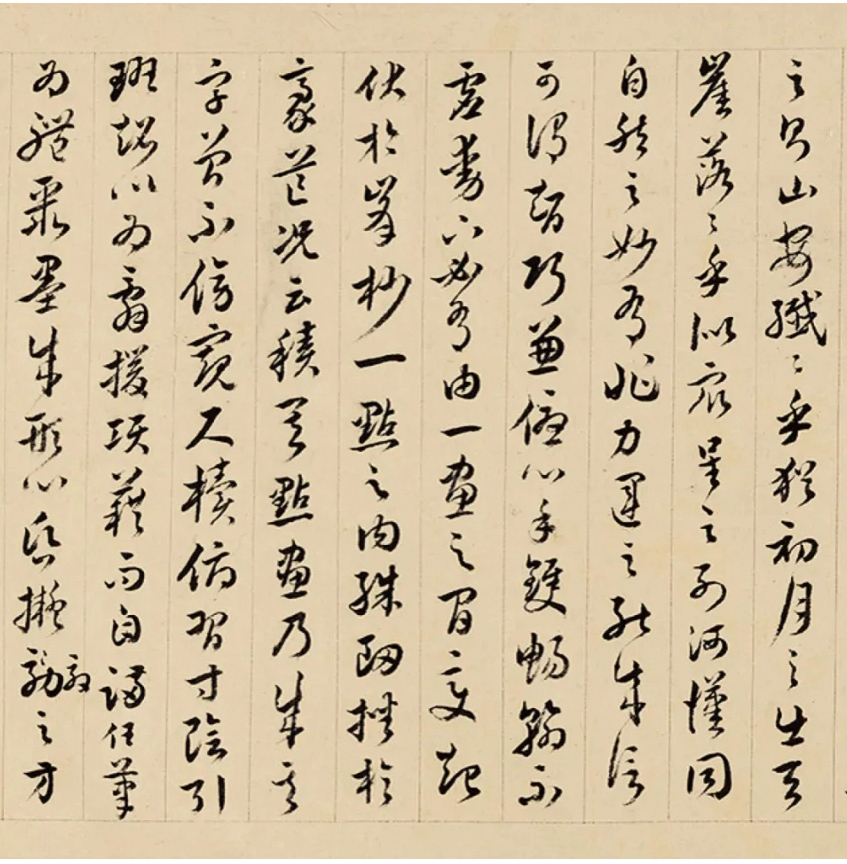 之則山安纖〻乎猶初月之出天
崖落〻乎似眾星之列河漢同
自然之妙有非力運之能成信
可謂智巧兼優心手雙暢翰不
虛動下必有由一畫之間變起
伏於峯杪一點之內殊衄挫於
豪芒況云積其點畫乃成其
字曾不傍窺尺牘俯習寸陰引
班超以為辭援項籍而自滿任筆
為體聚墨成形心昏擬效之方